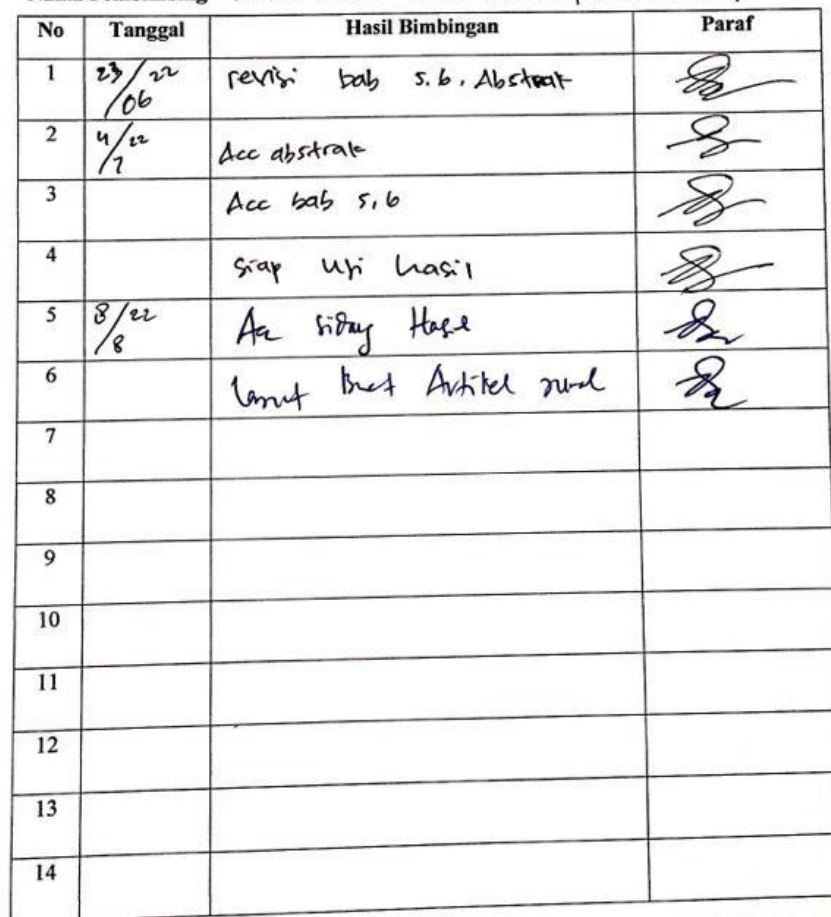 No Tanggal Hasil Bimbingan Paraf
1 23/06 22 revisi bab 5.6. Abstrak
2 4/7 22 Acc abstrak
3 Acc bab 5,6
4 siap uji hasil
5 8/8 22 Acc sidang Hasil
6 Lanjut Buat Artikel
7
8
9
10
11
12
13
14